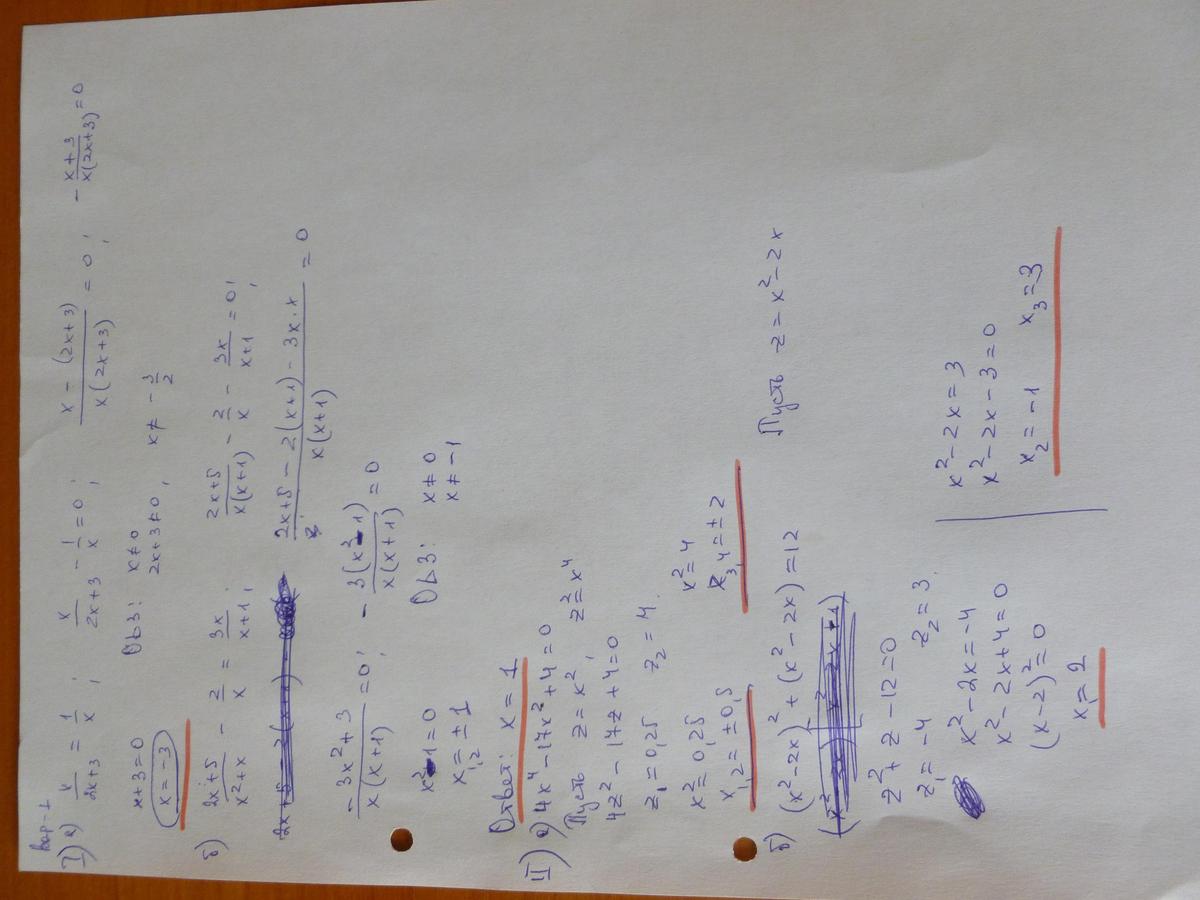 вар-1
I) а) x/(2x+3) = 1/x ; x/(2x+3) - 1/x = 0 ; (x - (2x+3))/(x(2x+3)) = 0 ; - (x+3)/(x(2x+3)) = 0
x+3=0 ОДЗ: x≠0
x=-3 2x+3≠0, x≠ -3/2
б) (2x+5)/(x²+x) - 2/x = 3x/(x+1) ; (2x+5)/(x(x+1)) - 2/x - 3x/(x+1) = 0 ;
(2x+5 - 2(x+1) - 3x·x)/(x(x+1)) = 0
(-3x²+3)/(x(x+1)) = 0 ; - 3(x²-1)/(x(x+1)) = 0
x²-1=0 ОДЗ: x≠0
x₁,₂=±1 x≠-1
Ответ: x=1
II) а) 4x⁴-17x²+4=0
Пусть z=x², z²=x⁴
4z²-17z+4=0
z₁=0,25 z₂=4
x²=0,25 x²=4
x₁,₂=±0,5 x₃,₄=±2
б) (x²-2x)²+(x²-2x)=12 Пусть z=x²-2x
z²+z-12=0
z₁=-4 z₂=3
x²-2x=-4 x²-2x=3
x²-2x+4=0 x²-2x-3=0
(x-2)²=0 x₂=-1 x₃=3
x₁=2